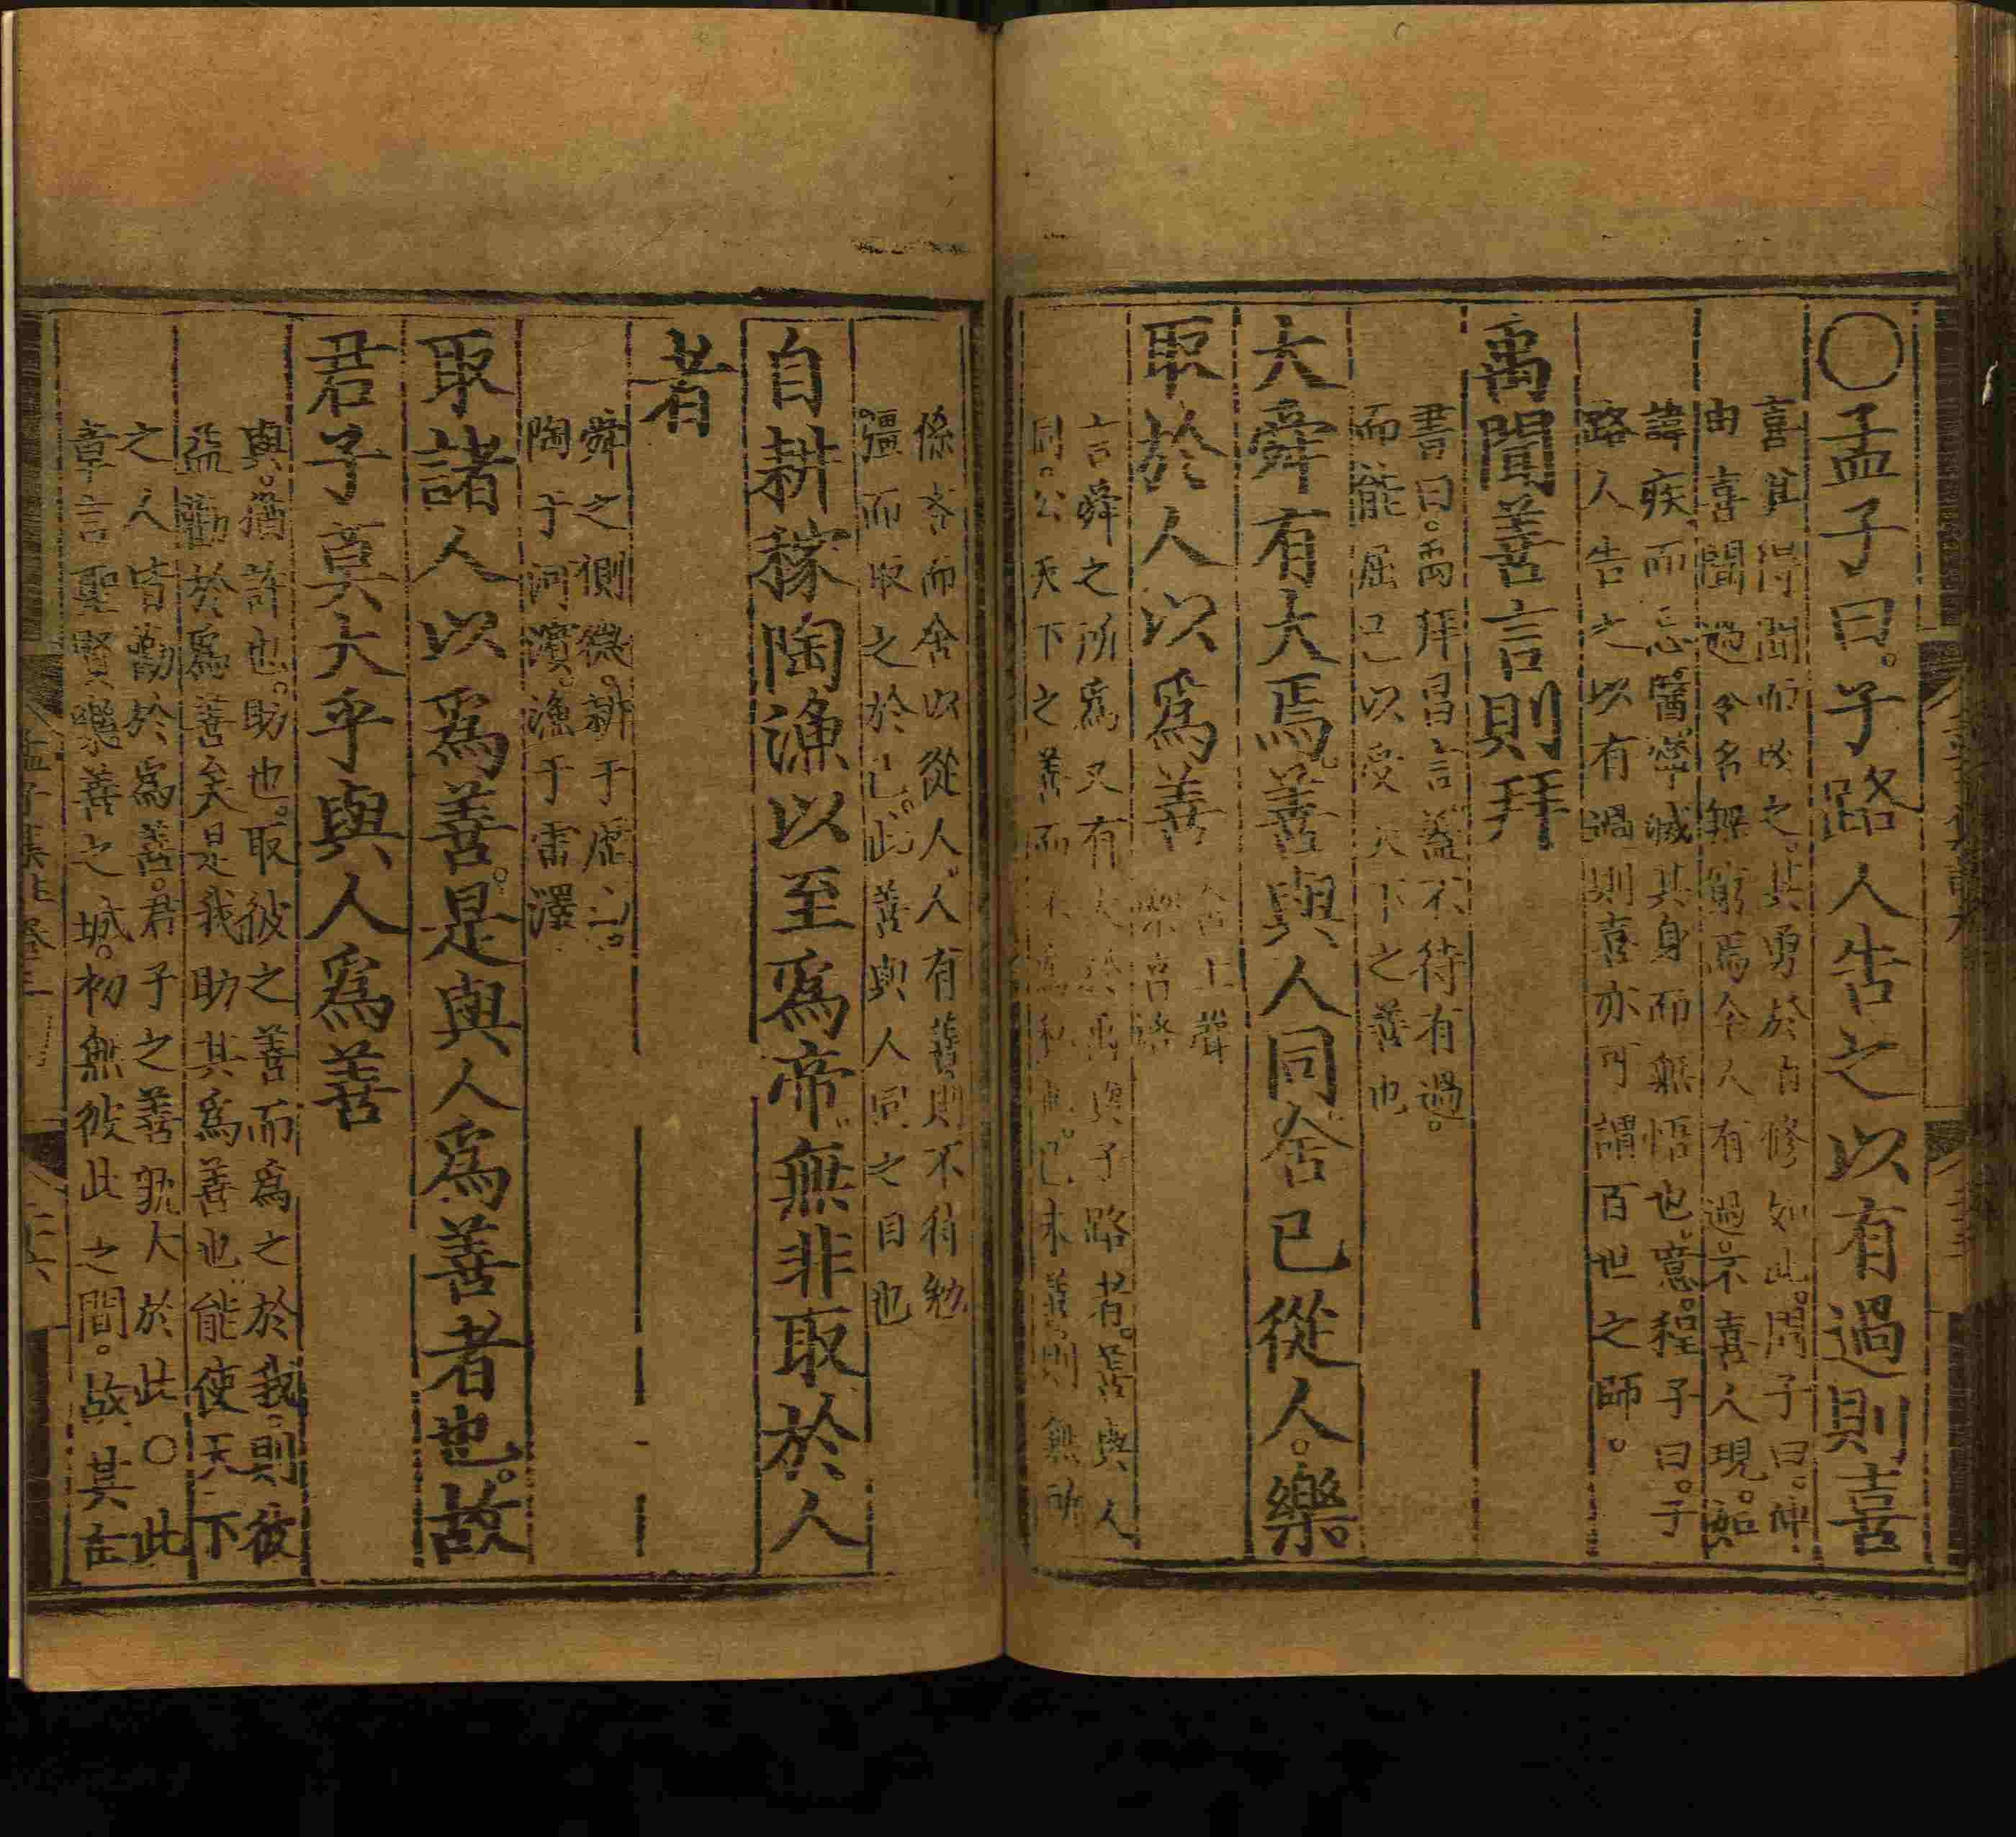 ○孟子曰。子路人告之以有過則喜
喜其得聞而改之。其勇於自修如此。周子曰。仲
由喜聞過令名無窮焉今人有過不喜人規。如
諱疾而忌醫寧滅其身而無悟也。噫。程子曰。子
路人告之以有過則喜亦可謂百世之師。
禹聞善言則拜
書曰。禹拜昌言蓋不待有過。
而能屈己以受天下之善也
大舜有大焉善與人同舍已從人。樂
取於人以為善
舍上聲
樂音洛
言舜之所為又有大於禹與子路者。善與人
同。公天下之善而不為私也。己未善則無所
係吝而舍以從人。人有善則不待勉
彊而取之於己。此善與人同之目也
自耕稼陶漁以至為帝無非取於人
者
舜之側微。耕于歷山。
陶于河濱。漁于雷澤
取諸人以為善。是與人為善者也。故
君子莫大乎與人為善
與。猶許也。助也。取彼之善而為之於我則彼
益勸於為善矣是我助其為善也能使天下
之人皆勸於為善。君子之善孰大於此○此
章言聖賢樂善之誠。初無彼此之間。故其在